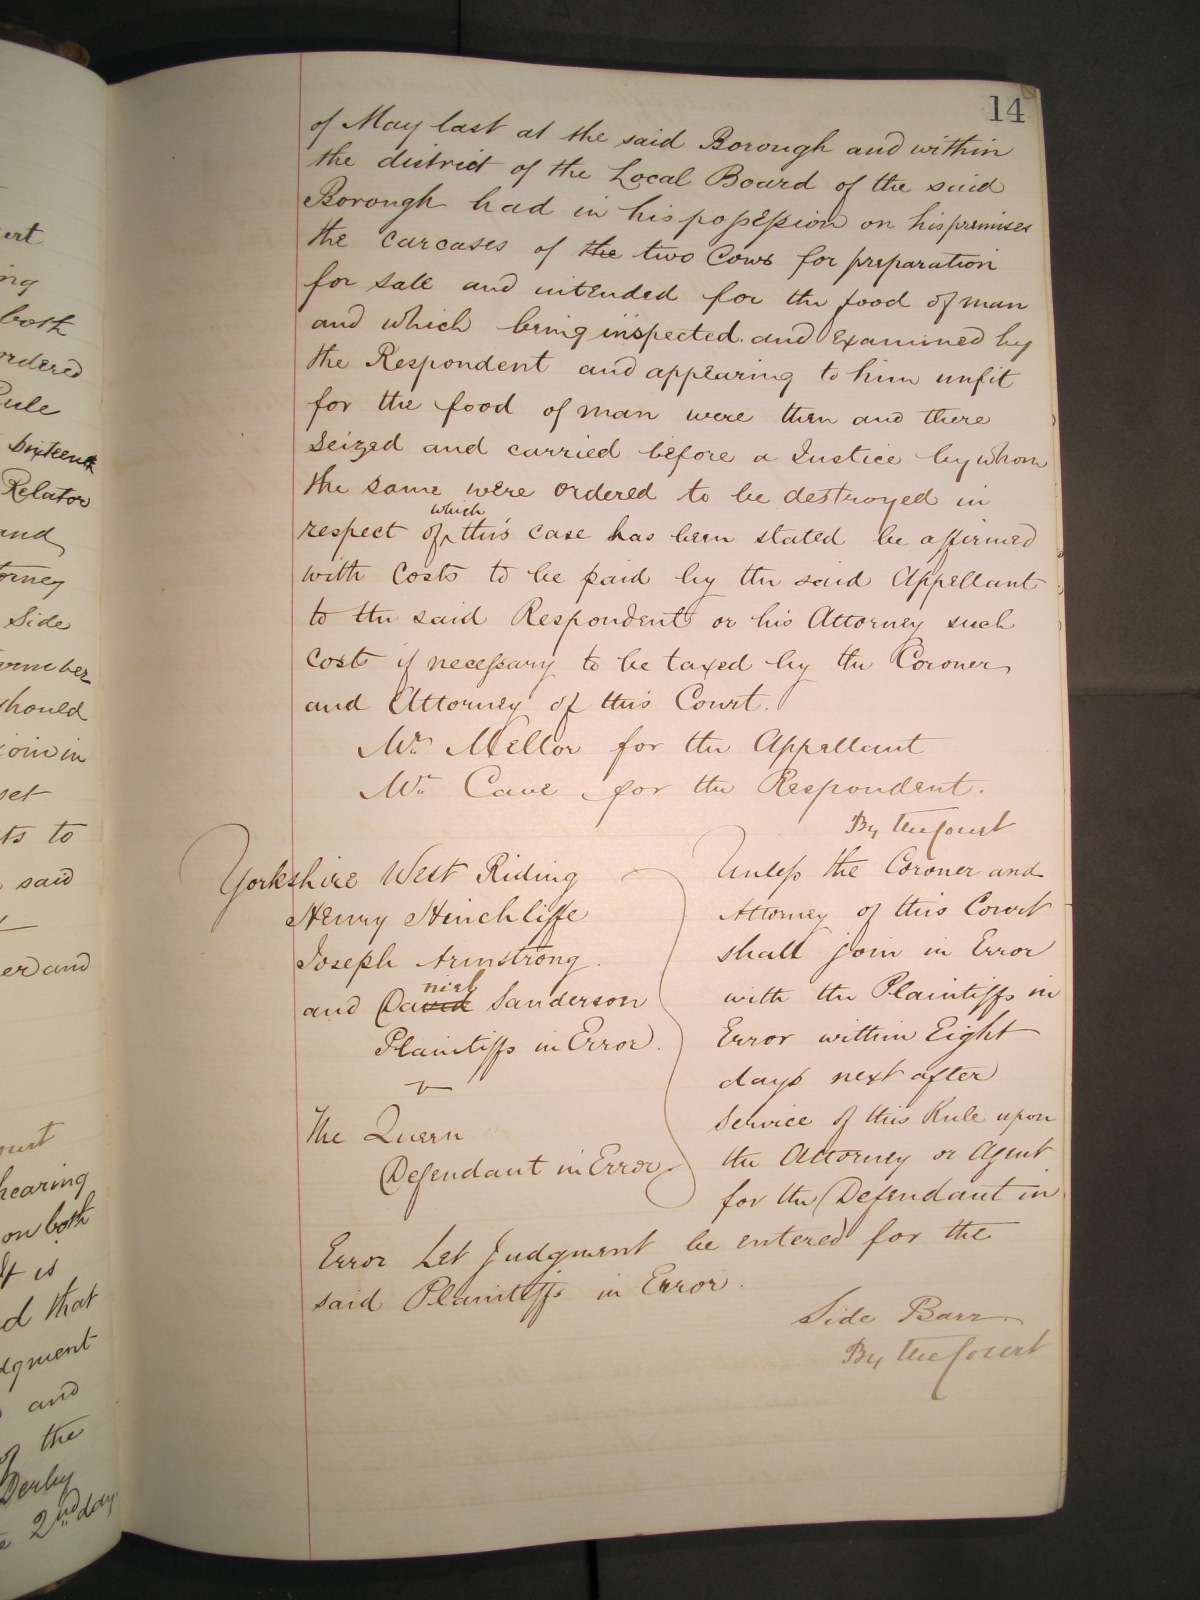 14
of May last at the said Borough and within
the district of the Local Board of the said
Borough had in his possession on his premises
the carcases of the two Cows for preparation
for sale and intended for the food of man
and which being inspected and Examined by
the Respondent and appearing to him unfit
for the food of man were then and there
seized and carried before a Justice by whom
the same were ordered to be destroyed in
which
respect of this case has been stated be affirmed
with Costs to be paid by the said Appellant
to the said Respondent or his Attorney such
Costs if necessary to be taxed by the Coroner
and Attorney of this Court.
Mr. Mellor for the Appellant
Mr. Cave for the Respondent.
By the Court
Yorkshire West Riding
Henry Hinchliffe
Joseph Armstrong.
niel
and David Sanderson
Plaintiffs in Error.
v
The Queen
Defendant in Error
Unless the Coroner and
Attorney of this Court
shall join in Error
with the Plaintiffs in
Error within Eight
days next after
service of this Rule upon
the Attorney or Agent
for the Defendant in
Error Let Judgment be entered for the
said Plaintiffs in Error.
Side Bar
By the Court
ert
ing
both
ordered
Rule
Sixteenth
Relator
and
orney
Side
should
join in
set
ts to
said
er and
ourt
hearing
on both
It is
d that
dgment
and
of the
Derby
2nd day